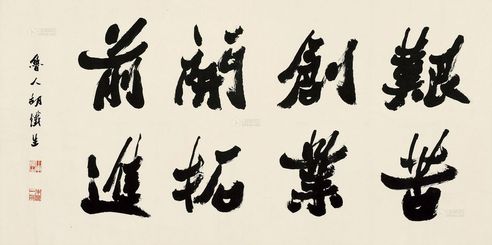 艱苦
創業
開拓
前進
魯人胡鐵生